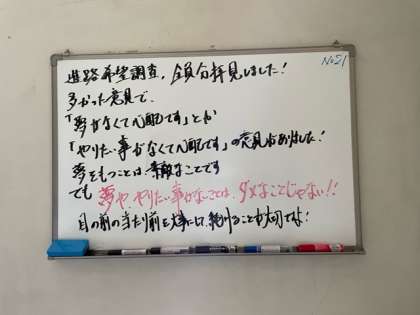 No21
進路希望調査、全員分拝見しました!
多かった意見で、
「夢がなくて心配です」とか
「やりたい事がなくて心配です」の意見がありました!
夢をもつことは、素敵なことです
でも 夢や、やりたい事がないことは、ダメなことじゃない!!
目の前の当たり前を大事にして、続けることも大切ですよ!